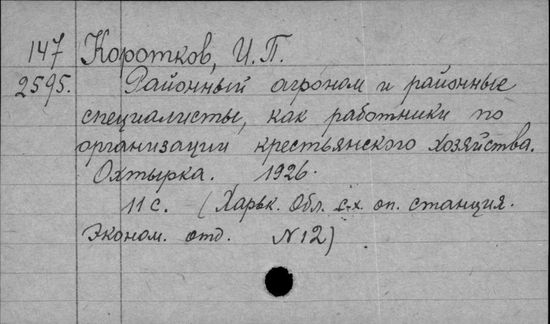 147 Коротков, И.П.
2595. Районный агроном и районные
специалисты, как работники по
организации крестьянского хозяйства.
Охтырка. 1926.
11 с. (Харьк. Обл. с.-х. оп. станция.
Эконом. отд. N 12)